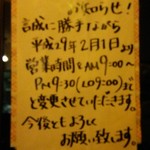 お知らせ!
誠に勝手ながら
平成29年2月1日より
営業時間をAM9:00〜
PM9:30(LO9:00)まで
と変更させていただきます。
今後ともよろしく
お願い致します。